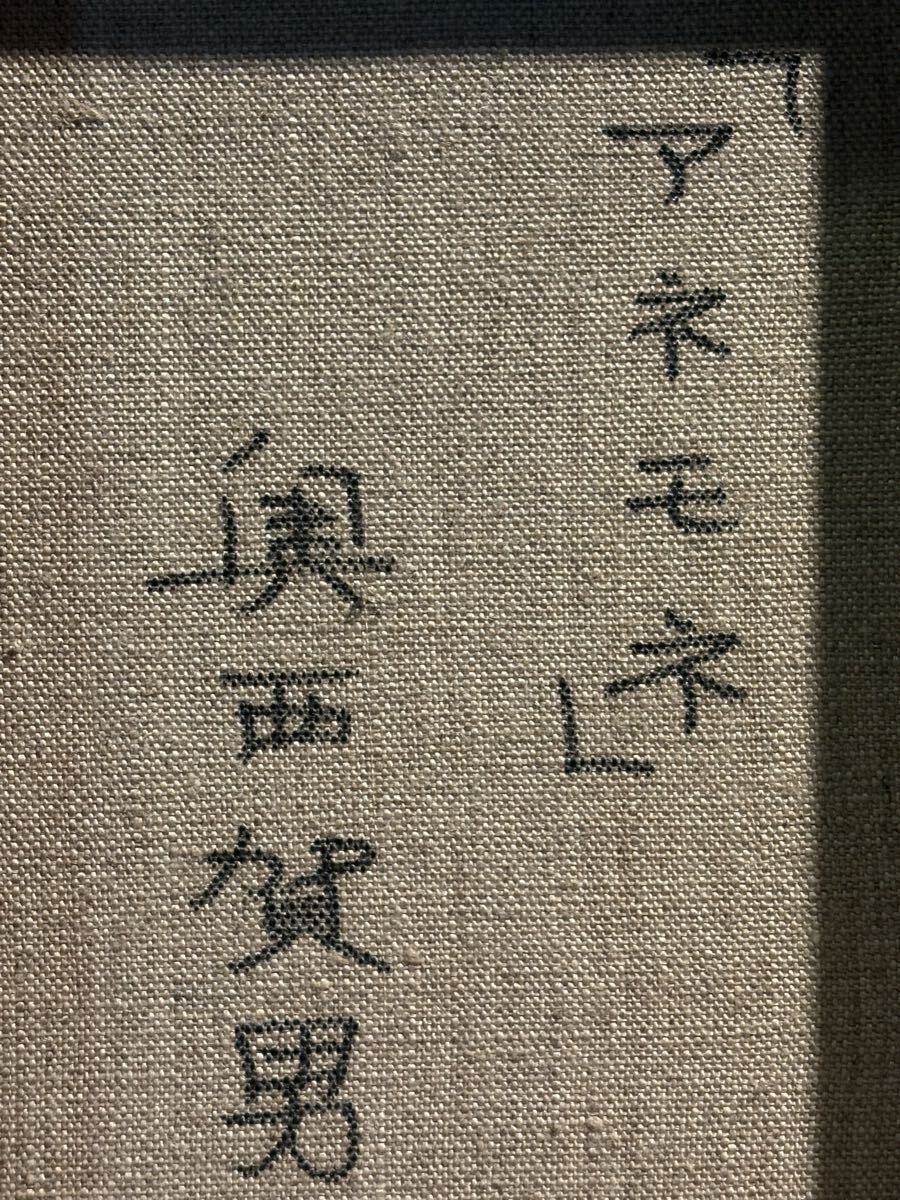 「アネモネ」
奥西賀男